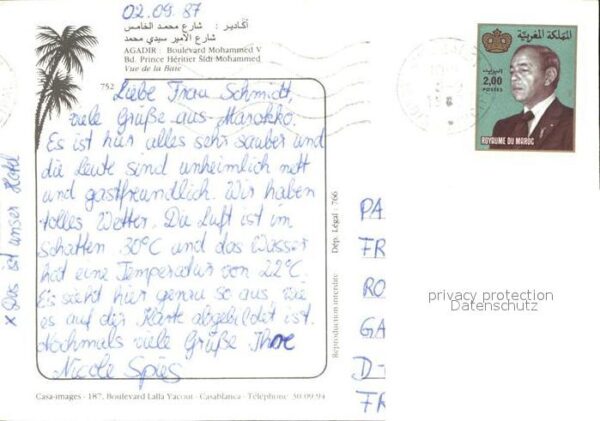 02.09.87
أكادير : شارع محمد الخامس
شارع الأمير سيدي محمد
AGADIR : Boulevard Mohammed V
Bd. Prince Héritier Sidi Mohammed
Vue de la Baie
752
Liebe Frau Schmidt,
viele Grüße aus Marokko.
Es ist hier alles sehr sauber und
die Leute sind unheimlich nett
und gastfreundlich. Wir haben
tolles Wetter. Die Luft ist im
Schatten 30°C und das Wasser
hat eine Temperatur von 22°C.
Es sieht hier genau so aus wie
es auf der Karte abgebildet ist.
Nochmals viele Grüße Ihre
Nicole Spies
x Das ist unser Hotel
Casa-images - 187, Boulevard Lalla Yacout - Casablanca - Téléphone 30.09.94
Reproduction interdite Dép. Légal - 766
المملكة المغربية
البريد
2,00
POSTES
ROYAUME DU MAROC
PA
FR
RO
GA
D-
FR
privacy protection
Datenschutz